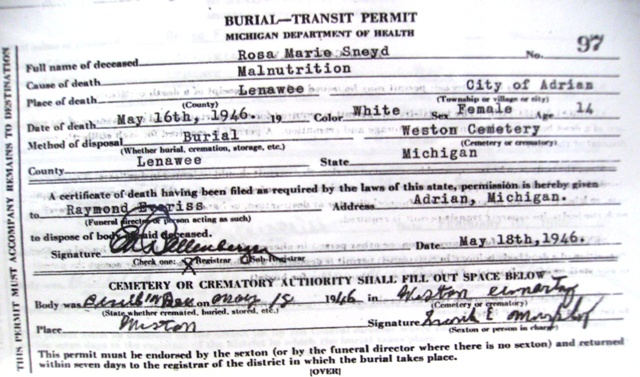 BURIAL—TRANSIT PERMIT
MICHIGAN DEPARTMENT OF HEALTH
No. 97
Full name of deceased Rosa Marie Sneyd
Cause of death Malnutrition
Place of death Lenawee City of Adrian
(County) (Township or village or city)
Date of death May 16th, 1946. 19 Color White Sex Female Age 14
Method of disposal Burial Weston Cemetery
(Whether burial, cremation, storage, etc.) (Cemetery or crematory)
County Lenawee State Michigan
A certificate of death having been filed as required by the laws of this state, permission is hereby given
to Raymond Address Adrian, Michigan.
(Funeral director or person acting as such)
to dispose of body of said deceased.
Signature Date May 18th, 1946.
Check one: X Registrar Sub-Registrar
CEMETERY OR CREMATORY AUTHORITY SHALL FILL OUT SPACE BELOW
Body was on May 18 1946 in Weston
(State whether cremated, buried, stored, etc.) (Cemetery or crematory)
Place Weston Signature
(Sexton or person in charge)
This permit must be endorsed by the sexton (or by the funeral director where there is no sexton) and returned
within seven days to the registrar of the district in which the burial takes place.
[OVER]
THIS PERMIT MUST ACCOMPANY REMAINS TO DESTINATION